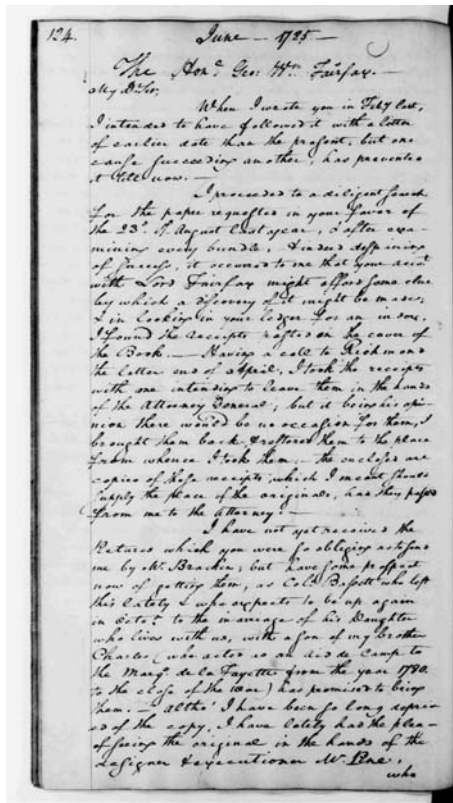 124.
June — 1785 —
The Hon.e Geo: Wm Fairfax. —
My Dr Sir,
When I wrote you in Feby last,
I intended to have followed it with a letter
of earlier date than the present, but one
cause succeeding another, has prevented
it till now. —
I proceeded to a diligent search
for the paper requested in your favor of
the 23d of August last year, & after exa-
mining every bundle, & indeed despairing
of success, it occurred to me that your accot
with Lord Fairfax might afford some clue
by which a discovery of it might be made;
& in looking in your ledger for an index,
I found the receipts pasted on the cover of
the Book. — Having a call to Richmond
the latter end of April, I took the receipts
with me intending to leave them in the hands
of the Attorney General; but it being his opi-
nion there would be no occasion for them, I
brought them back, & restored them to the place
from whence I took them. — the enclosed are
copies of those receipts, which I meant should
supply the place of the originals, had they passed
from me to the Attorney. —
I have not yet received the
Pictures which you were so obliging as to send
me by Mr. Bracken; but have some prospect
now of getting them, as Colo. Bassett who left
this lately & who expects to be up again
in Octor to the marriage of his Daughter
who lives with us, with a son of my brother
Charles (who acted as an aid de Camp to
the Marqs de la Fayette from the year 1780.
to the close of the war) has promised to bring
them. — altho' I have been so long depriv-
ed of the copy, I have lately had the pleas-
of seeing the original in the hands of the
designer & executioner Mr. Pine,
who